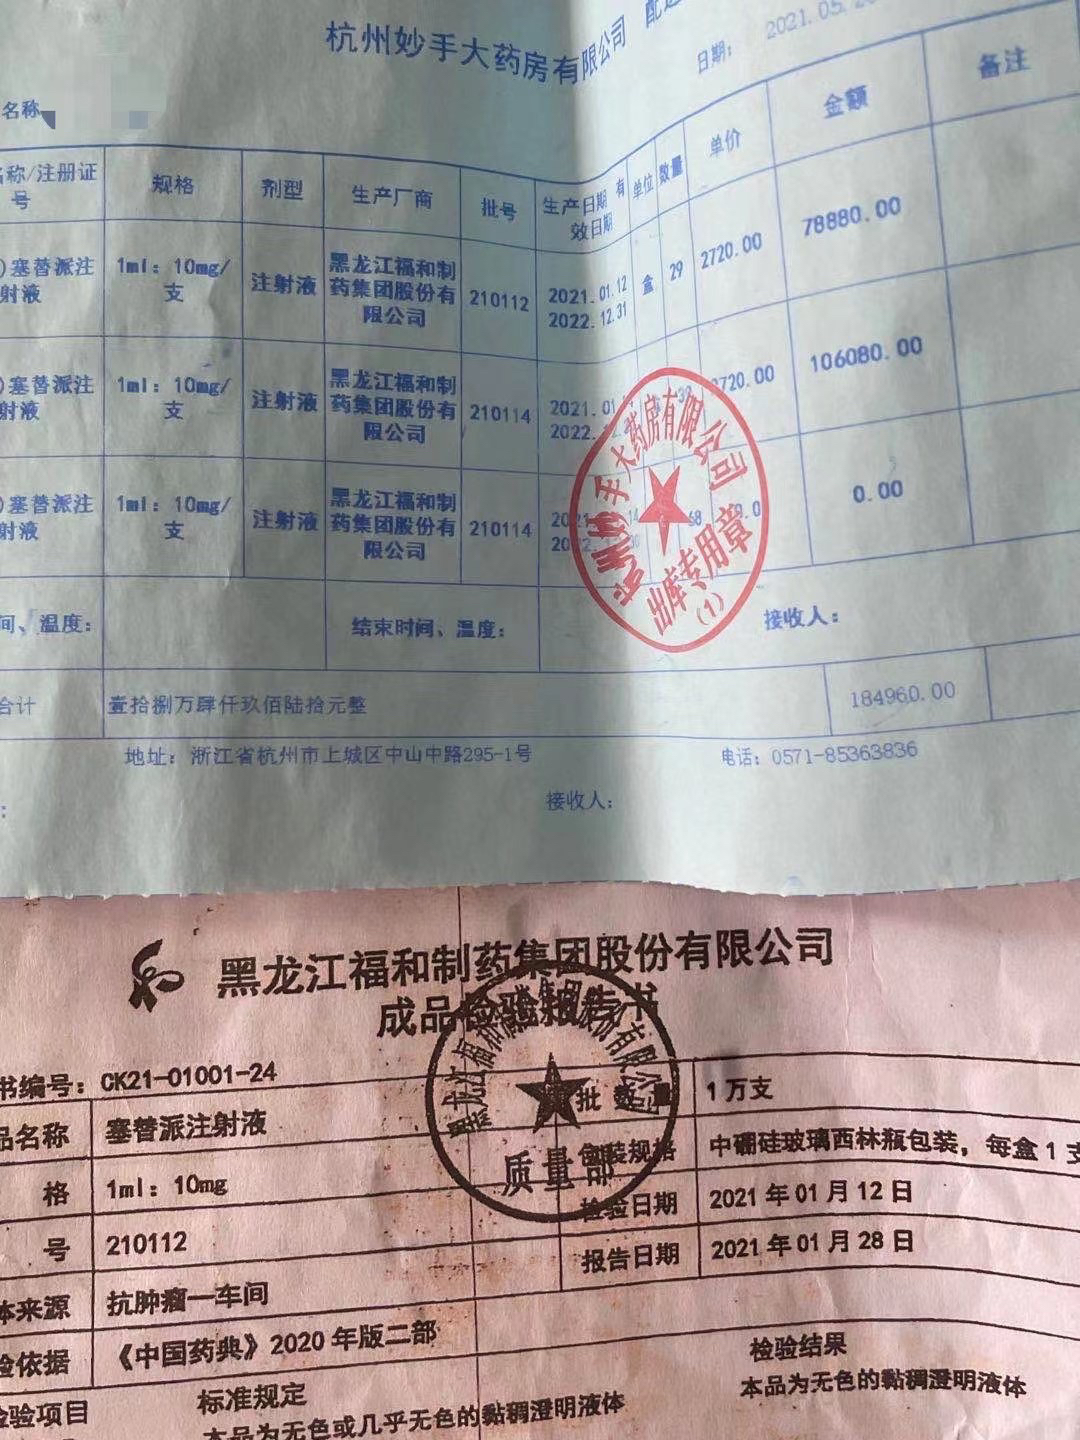 杭州妙手大药房有限公司
日期: 2021.05.2
名称
名称/注册证号 规格 剂型 生产厂商 批号 生产日期 有效日期 单位 数量 单价 金额 备注
)塞替派注射液 1ml: 10mg/支 注射液 黑龙江福和制药集团股份有限公司 210112 2021.01.12 2022.12.31 盒 29 2720.00 78880.00
)塞替派注射液 1ml: 10mg/支 注射液 黑龙江福和制药集团股份有限公司 210114 2021.01 2022. 2720.00 106080.00
)塞替派注射液 1ml: 10mg/支 注射液 黑龙江福和制药集团股份有限公司 210114 68 0.00
间、温度: 结束时间、温度: 接收人:
合计 壹拾捌万肆仟玖佰陆拾元整 184960.00
地址: 浙江省杭州市上城区中山中路295-1号 电话: 0571-85363836
接收人:
杭州妙手大药房有限公司
出库专用章
(1)
黑龙江福和制药集团股份有限公司
成品检验报告书
书编号: CK21-01001-24
品名称 塞替派注射液 批 数 量 1万支
格 1ml: 10mg 包装规格 中硼硅玻璃西林瓶包装，每盒1支
号 210112 检验日期 2021年01月12日
体来源 抗肿瘤一车间 报告日期 2021年01月28日
验依据 《中国药典》2020年版二部
检验项目 标准规定 检验结果
本品为无色或几乎无色的黏稠澄明液体 本品为无色的黏稠澄明液体
黑龙江福和制药集团股份有限公司
质量部